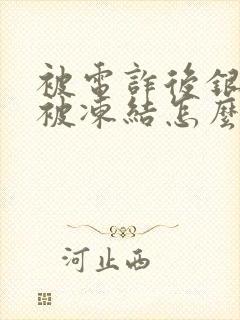 被電詐後銀
被凍結怎麼
河止西